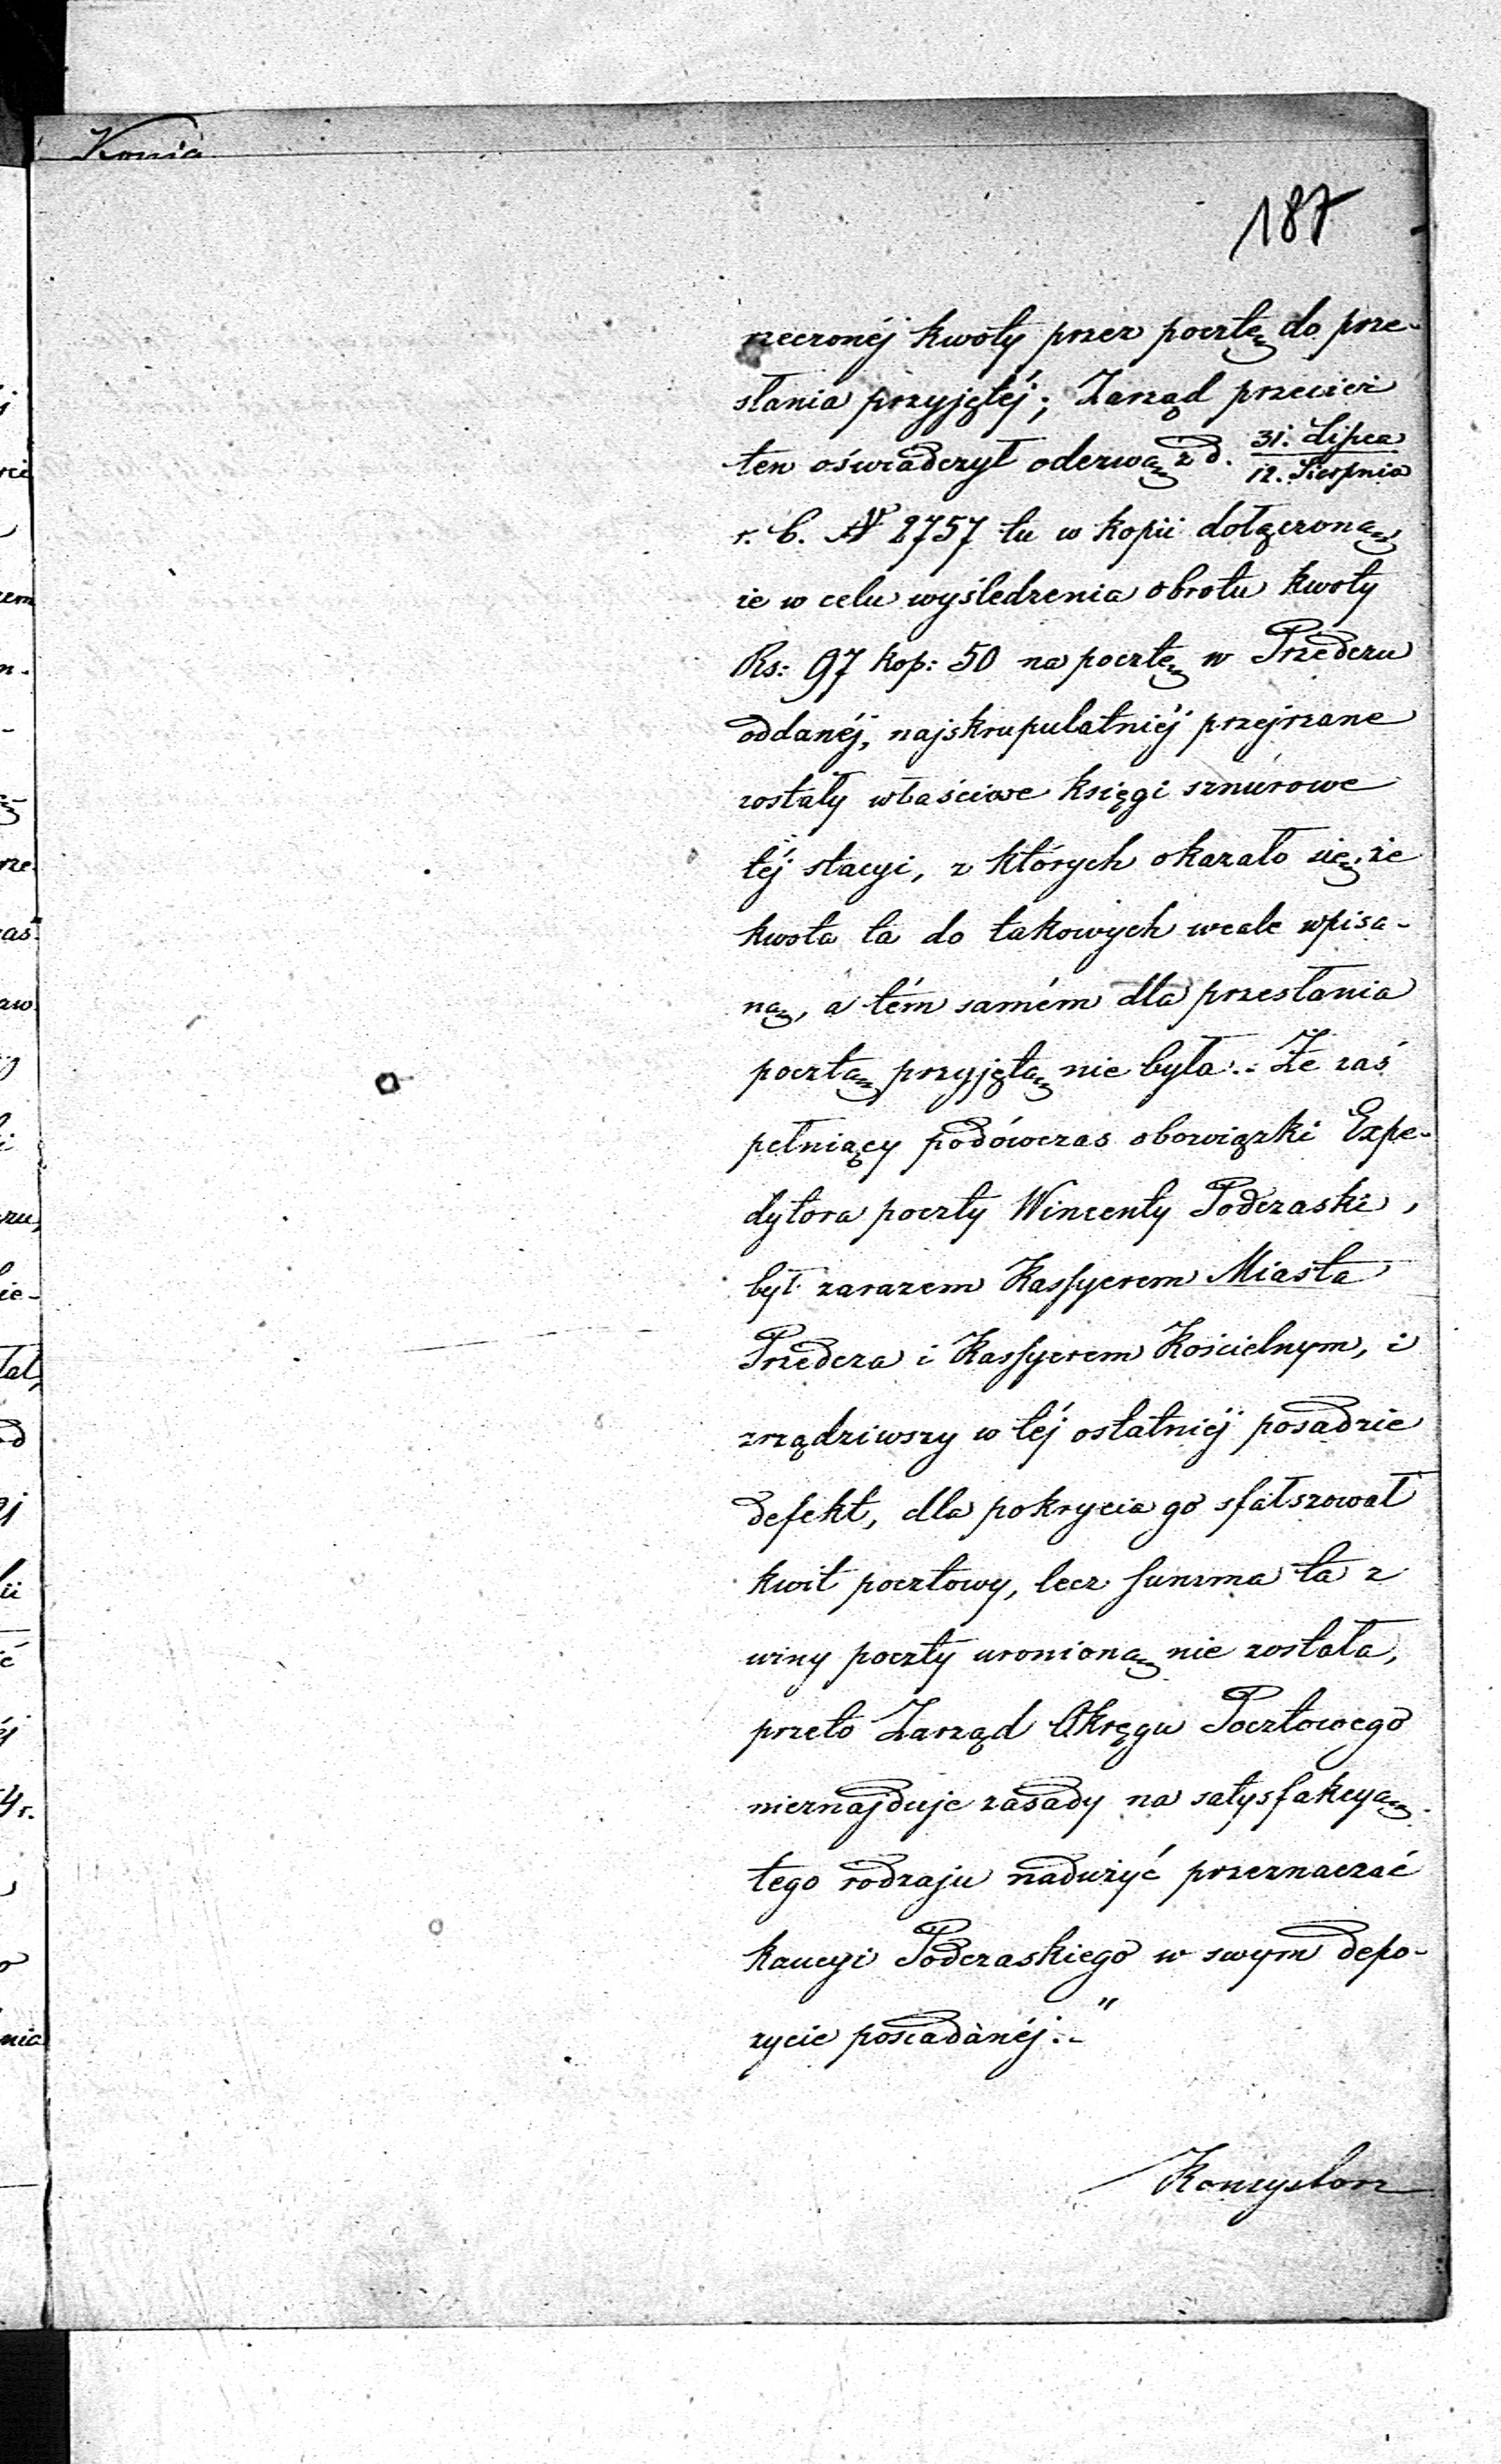 Konia
187
rzeczonéj kwoty przez pocztę do prze-
słania przyjętéj; Zarząd przecież
ten oświadczył odezwą z d. 31. Lipca / 12. Sierpnia
r. b. N 2757 tu w kopii dołączoną,
że w celu wyśledzenia obrotu kwoty
Rs: 97 kop: 50 na pocztę w Przedczu
oddanéj, najskrupulatniéj przejrzane
zostały właściwe księgi sznurowe
téj stacyi, z których okazało się, że
kwota ta do takowych wcale wpisa-
ną, a tém samém dla przesłania
pocztą przyjętą nie była.- Że zaś
pełniący podówczas obowiązki Expe-
dytora poczty Wincenty Podczaski,
był zarazem Kassyerem Miasta
Przedcza i Kassyerem Kościelnym, i
zrządziwszy w téj ostatniéj posadzie
defekt, dla pokrycia go sfałszował
kwit pocztowy, lecz summa ta z
winy poczty uronioną nie została,
przeto Zarząd Okręgu Pocztowego
nieznajduje zasady na satysfakcyą
tego rodzaju nadużyć przeznaczać
kaucyi Podczaskiego w swym depo-
zycie posiadanéj.-"
Konsystorz